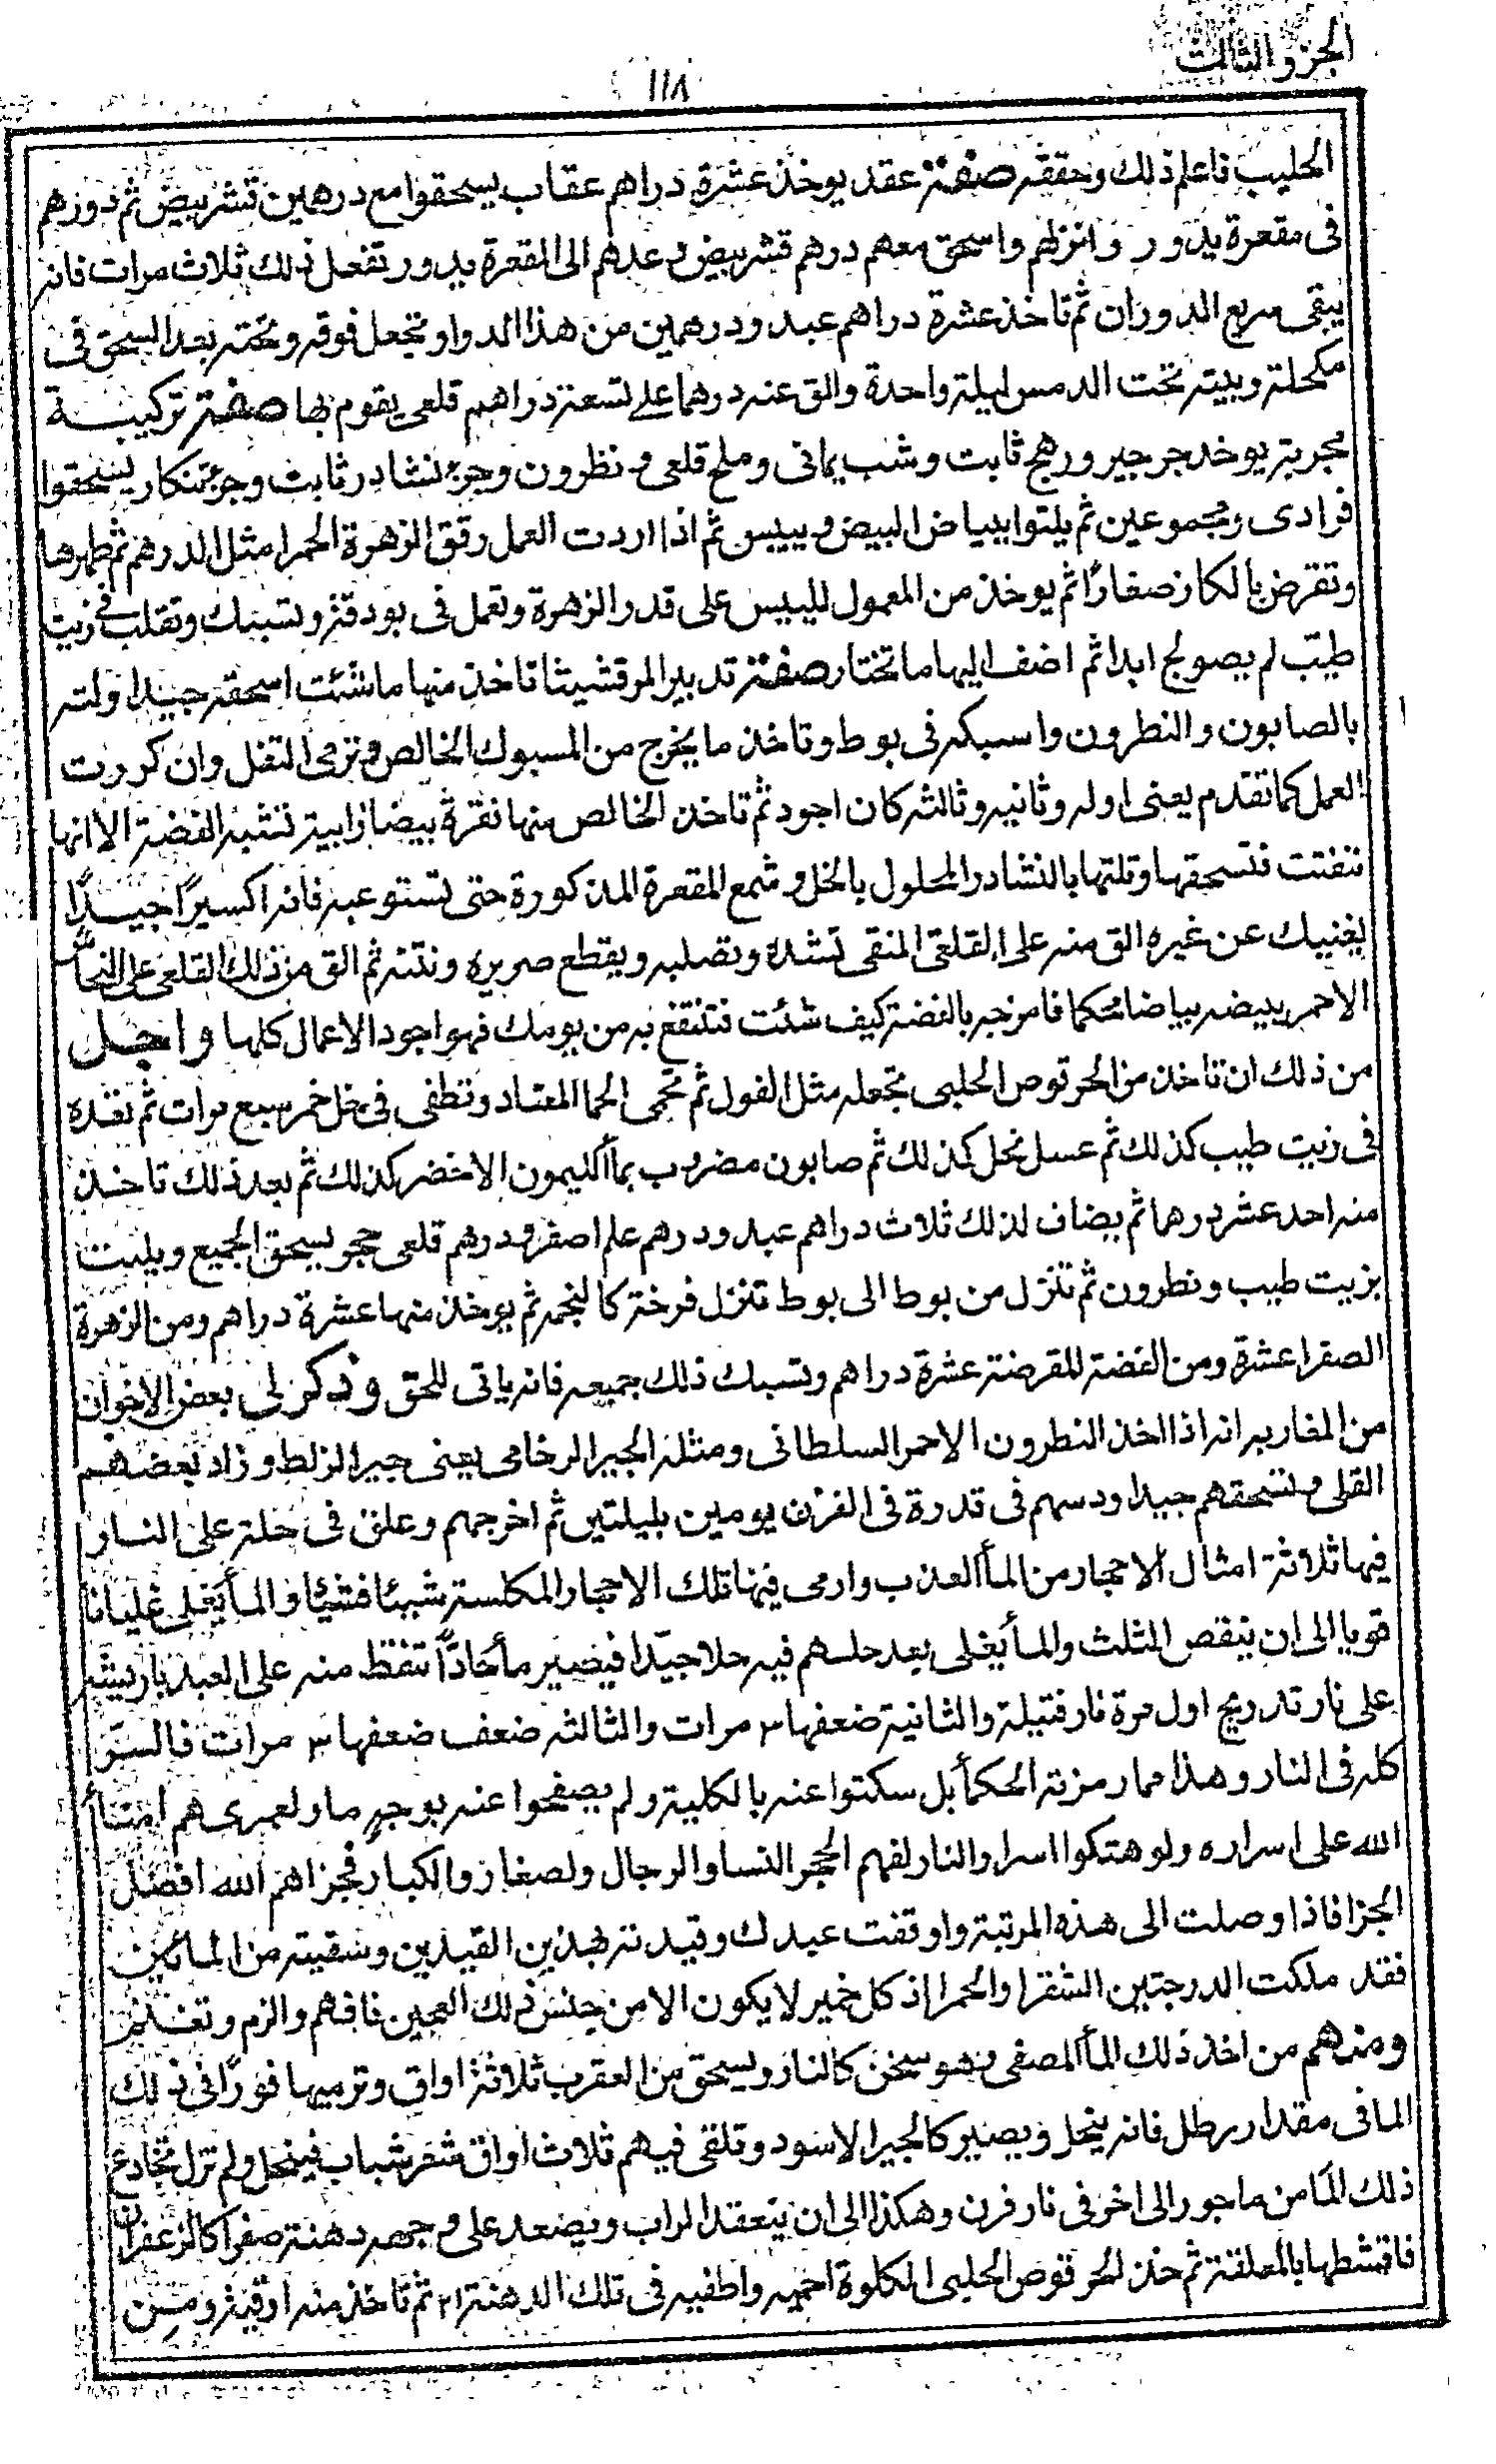 الجزو الثالث
١١٨
الحليب فاعلم ذلك وحققه صفة عقد يوخذ عشرة دراهم عقاب يسحقوا مع درهمين قشر بيض ثم دورهم
فى مقعرة يدور وانزلهم واسحق معهم درهم قشر بيض وعدهم الى المقعرة يدور تفعل ذلك ثلاث مرات فانه
يبقى سريع الدوران ثم تاخذ عشرة دراهم عبد ودرهمين من هذا الدوا وتجعل فوقه وتحته بعد السحق فى
مكحلة وبيته تحت الدمس ليلة واحدة والق عنه درهما على تسعة دراهم قلعى يقوم بها صفة تركيبة
مجربة يوخد جر جير ورهج ثابت وشب يمانى وملح قلعى ونظرون وجزء نشادر ثابت وجزء تنكار يسحقوا
فرادى ومجموعين ثم يلتوا ببياض البيض وييبس ثم اذا اردت العمل رقق الزهرة الحمرا مثل الدرهم ثم طهرها
وتقرض بالكاز صغارًا ثم يوخذ من المعمول لليبيس على قدر الزهرة وتعمل فى بودقة وتسبك وتقلب فى زيت
طيّب لم يصولج ابدا ثم اضف اليها ما تختار صفة تدبير المرقشيثا تاخذ منها ما شئت اسحقه جيدا ولته
بالصابون والنطرون واسبكه فى بوط وتاخذ ما يخرج من المسبوك الخالص وترمى التفل وان كررت
العمل كما تقدم يعنى اوله وثانيه وثالثه كان اجود ثم تاخذ الخالص منها نقرة بيضا زابية تشبه الفضة الا انها
تتفتت فتسحقها وتلتها بالنشادر المحلول بالخل وشمع المقعرة المذكورة حتى تستوعبه فانه اكسيرًا جيدًا
يغنيك عن غيره الق منه على القلعى المنقى تشده وتصلبه ويقطع صريره ونتنه ثم الق من ذلك القلعى على النحاس
الاحمر يبيضه بياضا محكما فامزجه بالفضة كيف شئت فتنتفع به من يومك فهو اجود الاعمال كلها واجل
من ذلك ان تاخذ من الحرقوص الحلبى تجعله مثل الفول ثم تحمى الحما المعتاد وتطفى فى خل خمر سبع مرات ثم تغذه
فى زيت طيب كذلك ثم عسل نحل كذلك ثم صابون مضروب بمأ الليمون الاخضر كذلك ثم بعد ذلك تاخذ
منه احد عشر درهما ثم يضاف لذلك ثلاث دراهم عبد ودرهم علم اصفر ودرهم قلعى حجر يسحق الجميع ويلت
بزيت طيب ونطرون ثم تنزل من بوط الى بوط تنزل فرخة كالنجمة ثم يوخذ منها عشرة دراهم ومن الزهرة
الصفرا عشرة ومن الفضة المقرضة عشرة دراهم وتسبك ذلك جميعه فانه ياتى للحق وذكر لى بعض الاخوان
من المغاربه انه اذا اخذ النطرون الاحمر السلطانى ومثله الجير الرخامى يعنى جير الزلط وزاد بعضهم
القلى وتسحقهم جيدا ودسهم فى قدرة فى الفرن يومين بليلتين ثم اخرجهم وعلق فى حلة على النار
فيها ثلاثة امثال الاحجار من المأ العذب وارمى فيها تلك الاحجار المكلسة شيئا فشيئا والمأ يغلى غليانا
قويا الى ان ينقص الثلث والمأ يغلى بعد حلسهم فيه حلا جيّدا فيصير مأ حادّاً تنقط منه على العبد بالريشه
على نار تدريج اول مرة نار فتيلة والثانية ضعفها ٣ مرات والثالثه ضعف ضعفها ٣ مرات فالسرّ
كله فى النار وهذا مما رمزته الحكمأ بل سكتوا عنه بالكلية ولم يصفحوا عنه بوجهٍ ما ولعمرى هم امنتأ
الله على اسراره ولو هتكوا اسرار النار لفهم الحجر النسا والرجال ولصغار والكبار فجزاهم الله افضل
الجزا فاذا وصلت الى هذه المرتبة واوقفت عبدك وقيدته بهذين القيدين وسقيته من المائين
فقد ملكت الدرجتين الشقرا والحمرا اذ كل خمير لا يكون الا من جنس ذلك العجين فافهم والزم وتغنم
ومنهم من اخذ ذلك المأ المصفى وهو سخن كالنار ويسحق من العقرب ثلاثة اواق وترميها فورًا فى ذلك
الما فى مقدار رطل فانه ينحل ويصير كالجير الاسود وتلقى فيهم ثلاث اواق شعر شباب فينحل ولم تزل تخادع
ذلك المأ من ماجور الى اخر فى نار فرن وهكذا الى ان ينعقد المراب ويصعد على وجهه دهنة صفرا كالزعفران
فاقشطها بالمعلقة ثم خذ الحرقوص الحلبى الكلوة احميه واطفيه فى تلك الدهنة ٢١ ثم تاخذ منه اوقية ومن